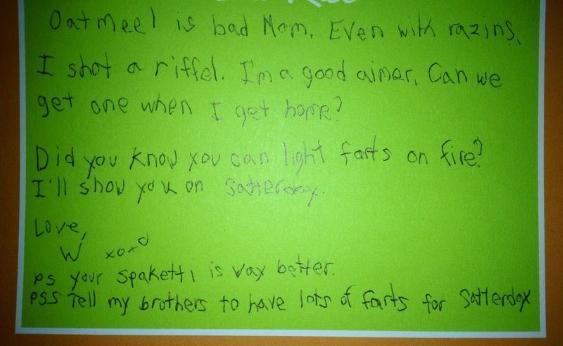 Oatmeel is bad Mom. Even with razins.
I shot a riffel. I'm a good aimar. Can we
get one when I get home?
Did you know you can light farts on fire?
I'll show you on Satterday.
Love,
W xoxo
ps your spaketti is way better.
pss Tell my brothers to have lots of farts for Satterday